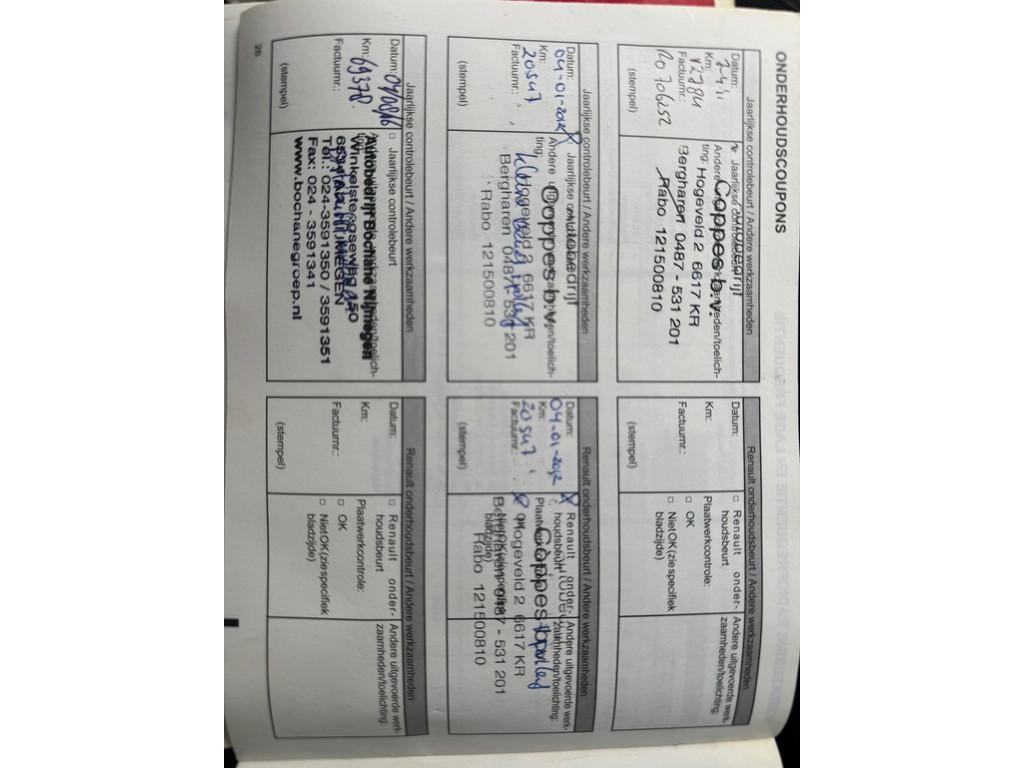 ONDERHOUDSCOUPONS
Jaarlijkse controlebeurt / Andere werkzaamheden
Datum:
7-4-11
Km:
12784
Factuurnr.:
(stempel)
Jaarlijkse controlebeurt
Andere
ting:
Autobedrijf
Coppes b.v.
Hogeveld 2 6617 KR
Bergharen 0487 - 531 201
Rabo 121500810
Renault onderhoudsbeurt / Andere werkzaamheden
Datum:
Km:
Factuurnr.:
(stempel)
□ Renault onder-
houdsbeurt
Plaatwerkcontrole:
□ OK
□ Niet OK (zie specifiek
bladzijde)
Andere uitgevoerde werk-
zaamheden/toelichting:
Jaarlijkse controlebeurt / Andere werkzaamheden
Datum:
04-01-2012
Km:
20547
Factuurnr.:
(stempel)
Jaarlijkse
Andere
ting:
Autobedrijf
Coppes b.v.
Hogeveld 2 6617 KR
Bergharen 0487 - 531 201
Rabo 121500810
Renault onderhoudsbeurt / Andere werkzaamheden
Datum:
04-01-2012
Km:
20547
Factuurnr.:
(stempel)
Renault onder-
houdsbeurt
Andere uitgevoerde werk-
zaamheden/toelichting:
Coppes b.v.
Hogeveld 2 6617 KR
Bergharen 0487 - 531 201
Rabo 121500810
bladzijde)
Jaarlijkse controlebeurt / Andere werkzaamheden
Datum: 04/08/16
Km: 69378
Factuurnr.:
(stempel)
□ Jaarlijkse controlebeurt
Autobedrijf Bochane Nijmegen
Winkelsteegseweg 150
NIJMEGEN
Tel.: 024-3591350 / 3591351
Fax: 024 - 3591341
www.bochanegroep.nl
Renault onderhoudsbeurt / Andere werkzaamheden
Datum:
Km:
Factuurnr.:
(stempel)
□ Renault onder-
houdsbeurt
Plaatwerkcontrole:
□ OK
□ Niet OK (zie specifiek
bladzijde)
Andere uitgevoerde werk-
zaamheden/toelichting:
26